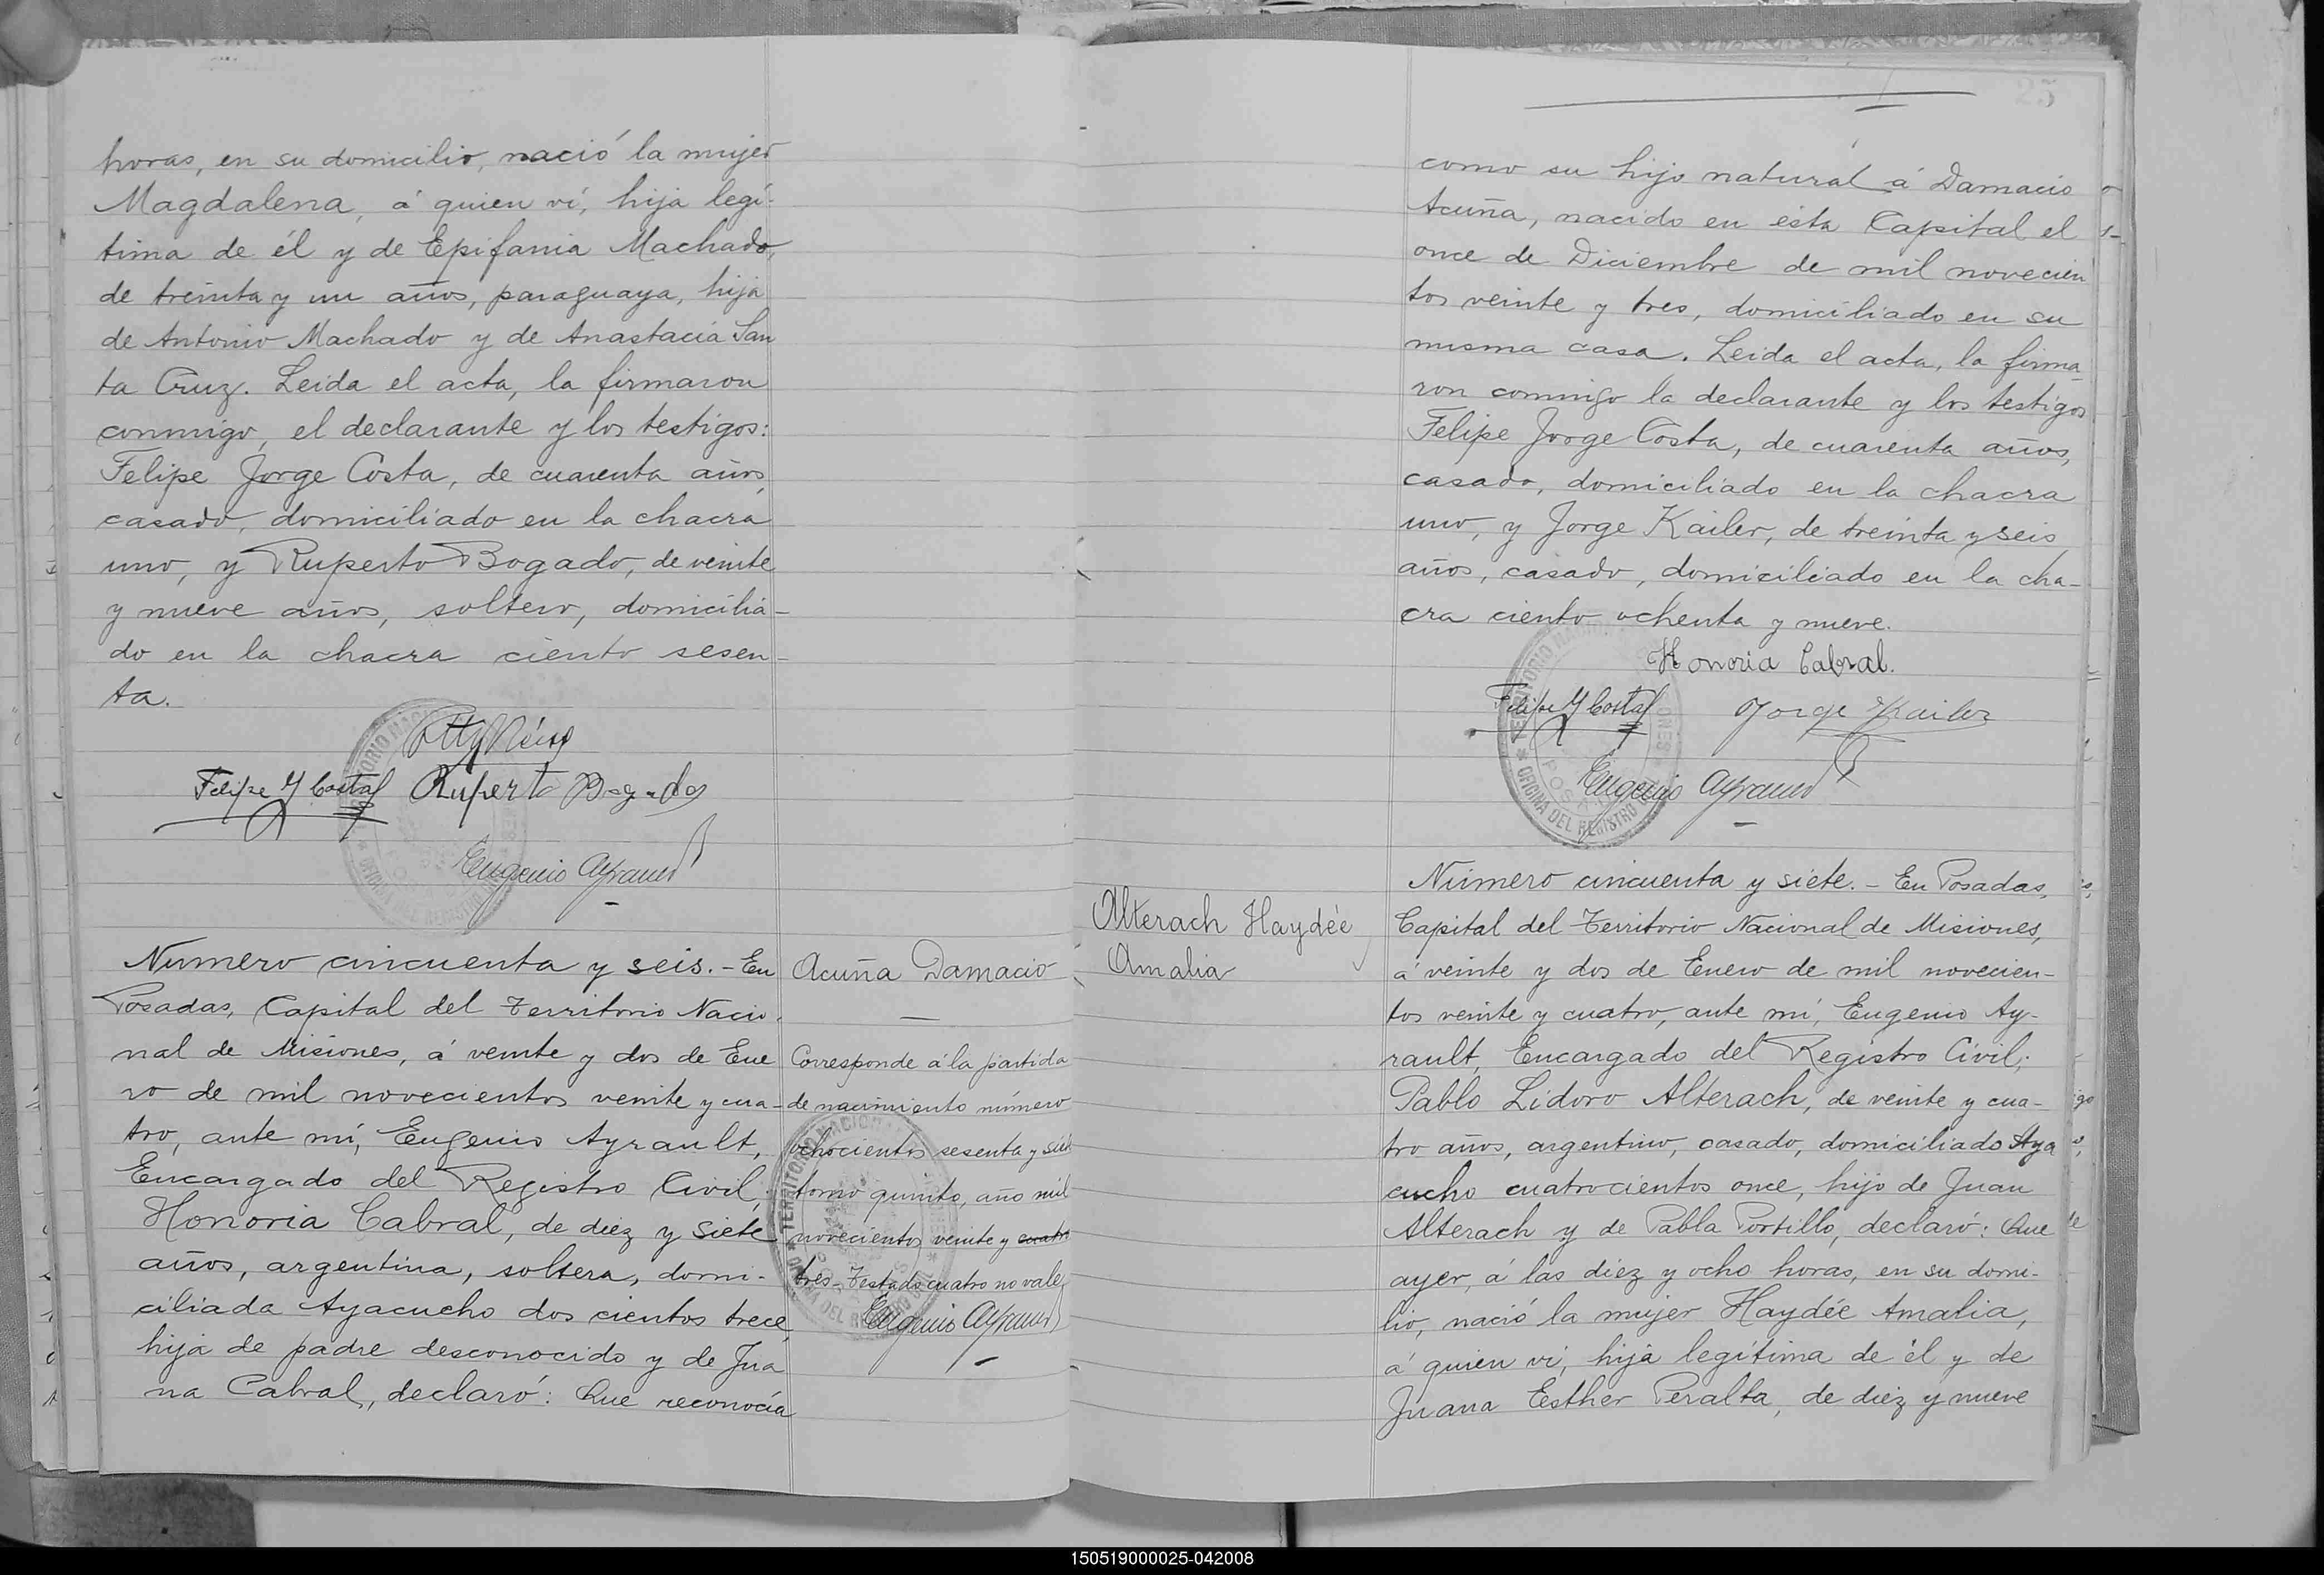 horas, en su domicilio, nació la mujer
Magdalena, á quien ví, hija legí-
tima de él y de Epifania Machado,
de treinta y un años, paraguaya, hija
de Antonio Machado y de Anastacia San
ta Cruz. Leida el acta, la firmaron
conmigo, el declarante y los testigos:
Felipe Jorge Costa, de cuarenta años,
casado, domiciliado en la chacra
uno, y Ruperto Bogado, de veinte
y nueve años, soltero, domicilia-
do en la chacra ciento sesen-
ta.
Felipe J Costa Ruperto Bogado
Eugenio Ayrault
Numero cincuenta y seis. - En
Posadas, Capital del Territorio Nacio
nal de Misiones, á veinte y dos de Ene
ro de mil novecientos veinte y cua-
tro, ante mí, Eugenio Ayrault,
Encargado del Registro Civil;
Honoria Cabral, de diez y siete
años, argentina, soltera, domi-
ciliada Ayacucho dos cientos trece,
hija de padre desconocido y de Jua
na Cabral, declaró: Que reconocía
Acuña Damacio
Corresponde á la partida
de nacimiento número
ochocientos sesenta y siete
tomo quinto, año mil
novecientos veinte y cuatro
tres - Testado cuatro no vale
Eugenio Ayrault
25
como su hijo natural á Damacio
Acuña, nacido en ésta Capital el
once de Diciembre de mil novecien
tos veinte y tres, domiciliado en su
misma casa. Leida el acta, la firma-
ron conmigo la declarante y los testigos
Felipe Jorge Costa, de cuarenta años,
casado, domiciliado en la chacra
uno, y Jorge Kailer, de treinta y seis
años, casado, domiciliado en la cha-
cra ciento ochenta y nueve.
Honoria Cabral.
Felipe J Costa Jorge Kailer
Eugenio Ayrault
TERRITORIO NACIONAL
POSADAS
OFICINA DEL REGISTRO
Alterach Haydée
Amalia
Número cincuenta y siete. - En Posadas,
Capital del Territorio Nacional de Misiones,
á veinte y dos de Enero de mil novecien-
tos veinte y cuatro, ante mí, Eugenio Ay-
rault, Encargado del Registro Civil;
Pablo Lidoro Alterach, de veinte y cua-
tro años, argentino, casado, domiciliado Aya
cucho cuatrocientos once, hijo de Juan
Alterach y de Pabla Portillo, declaró: Que
ayer, á las diez y ocho horas, en su domi-
lio, nació la mujer Haydée Amalia,
á quien ví, hija legítima de él y de
Juana Esther Peralta, de diez y nueve
150519000025-042008